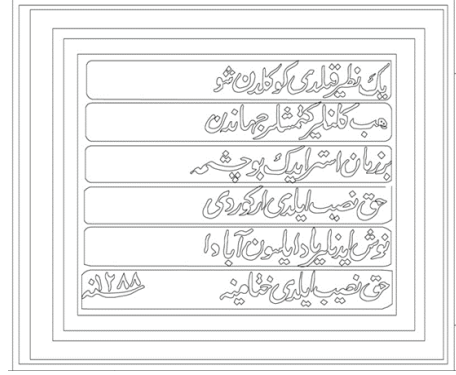 یک نظر قیلدی کوکلدن شو
هب کلنلر کتمشلر جهاندن
بر زمان استر ایدک بو چشمه
حق نصیب ایلدی ار کوردی
نوش ایدنلر یاد ایلسون آبادا
حق نصیب ایلدی ختامینه سنه ١٢٨٨